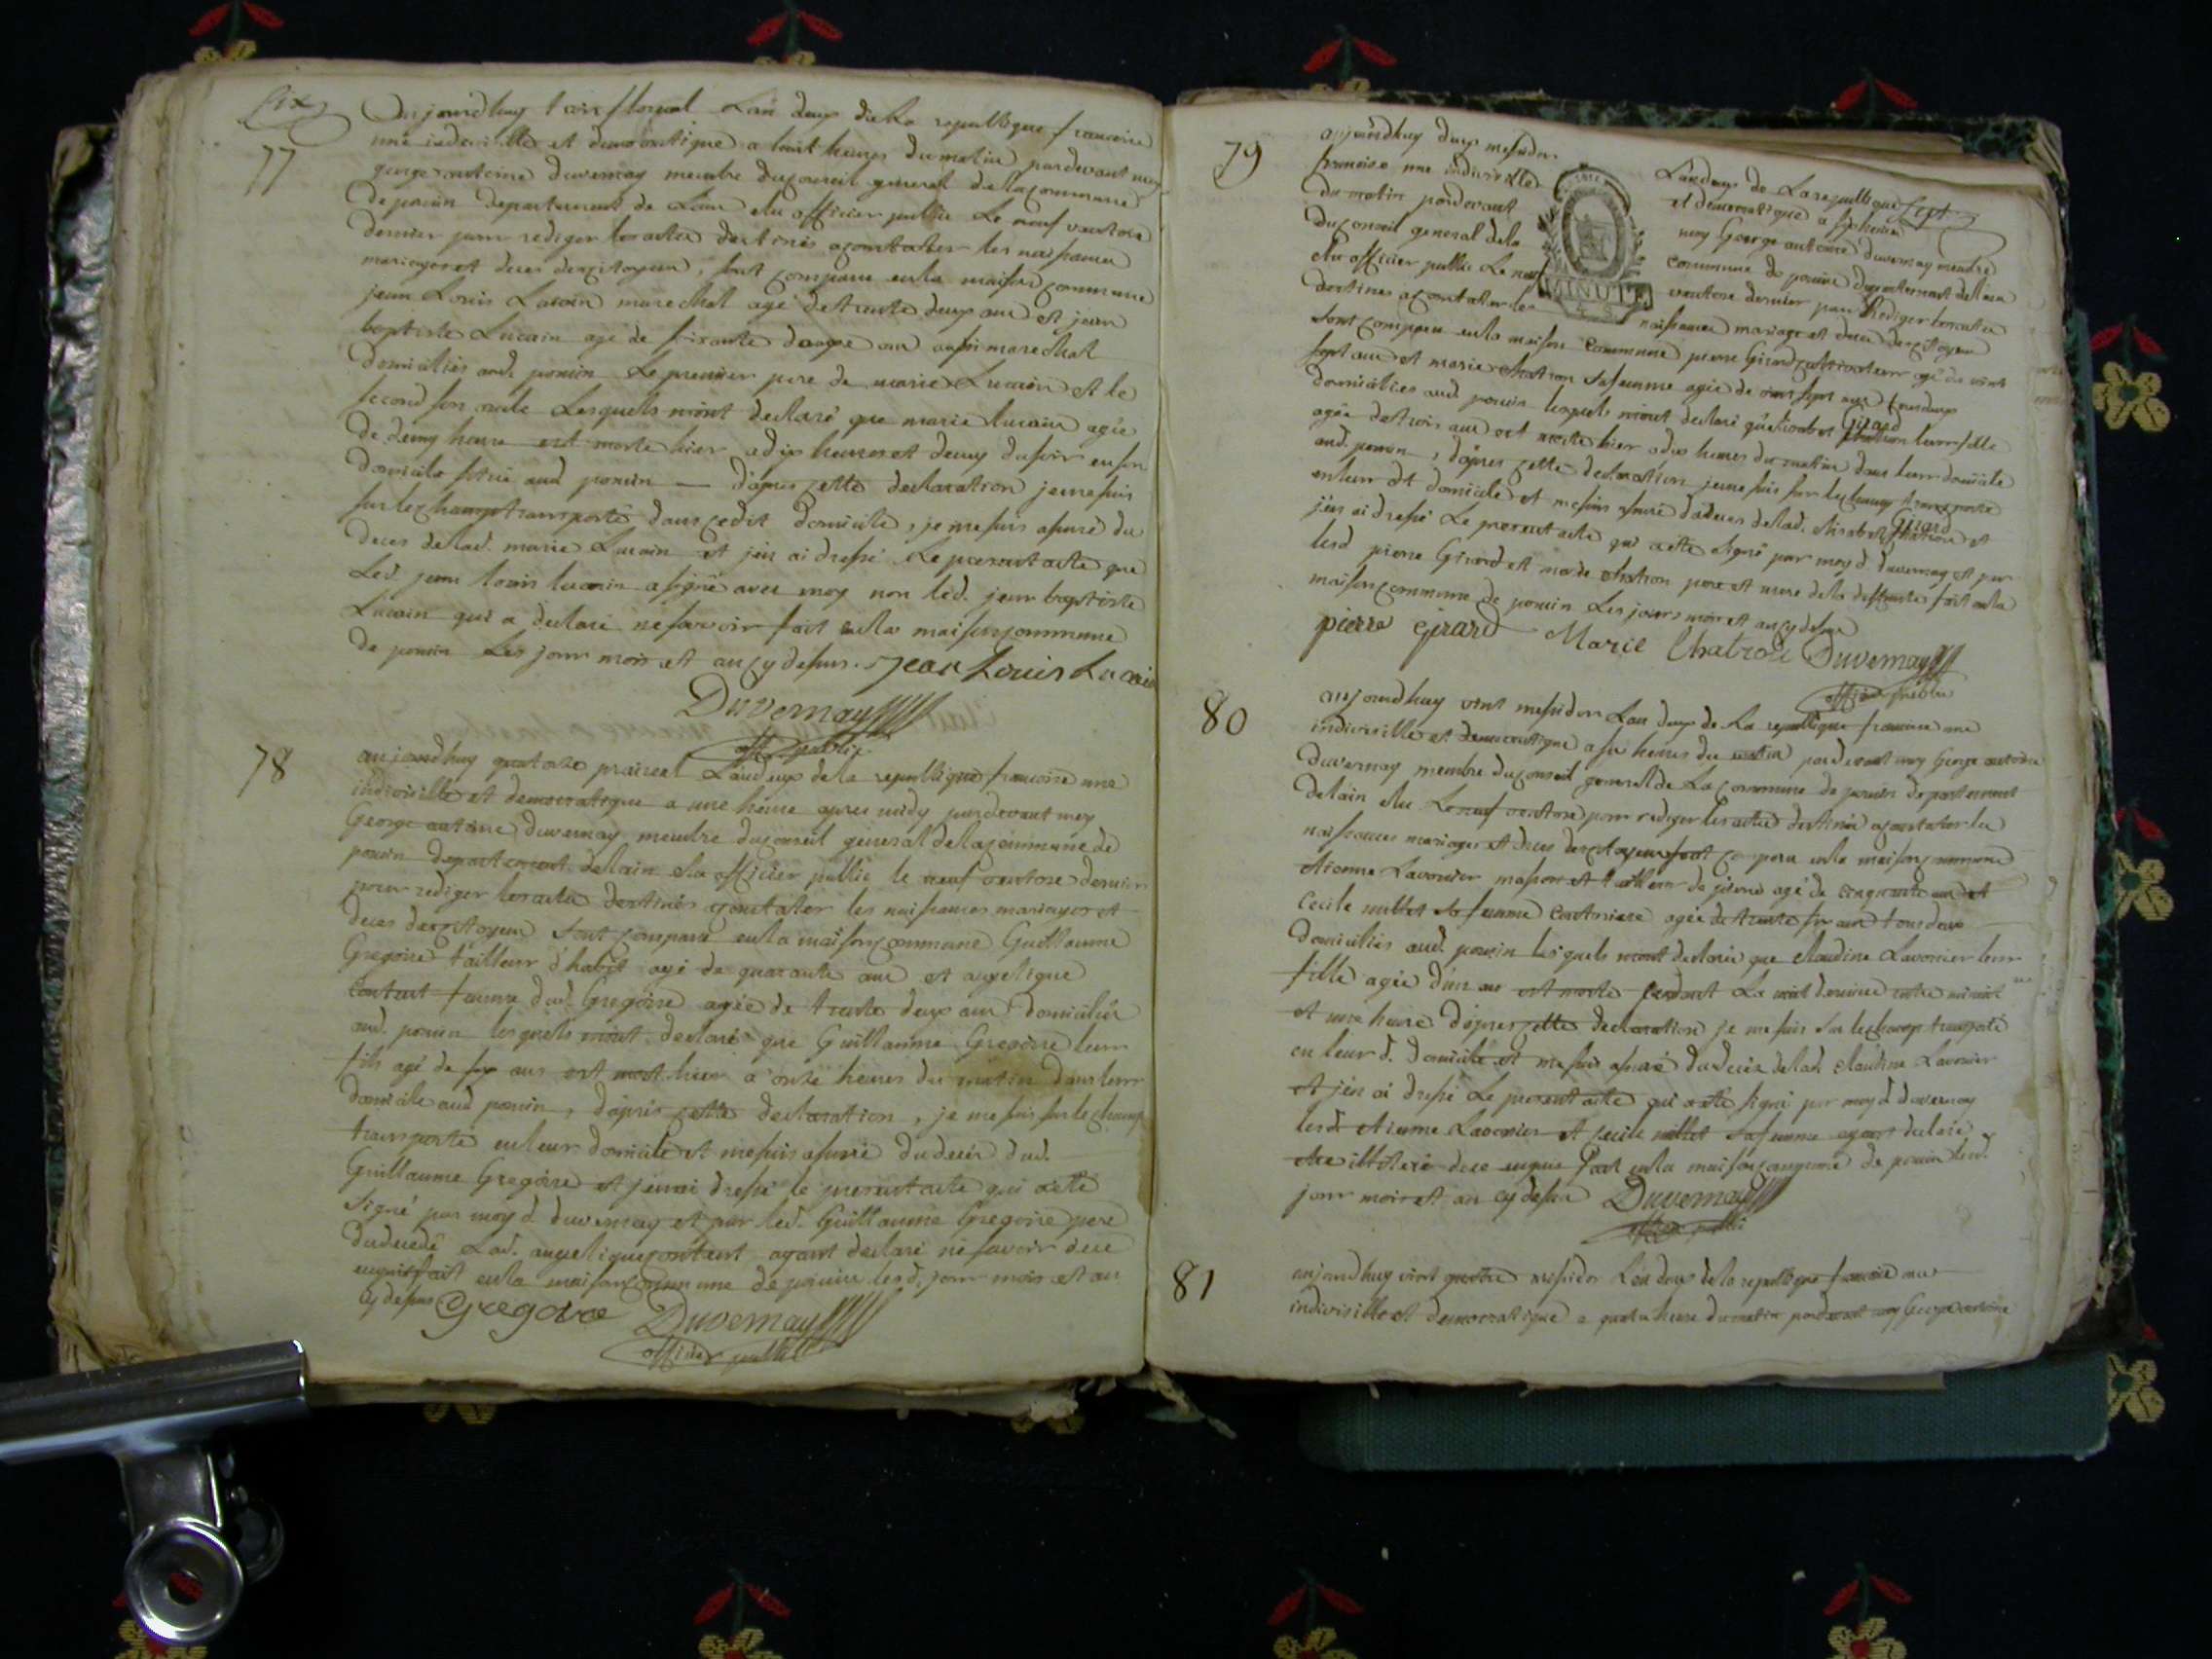 six
77
Aujourdhuy trois floreal Lan deux de la republique francoise
une indivisible et democratique a huit heures du matin pardevant moy
george antoine duvernay membre du conseil general de la commune
de poncin departement de Lain elu officier public Le neuf ventose
dernier pour rediger les actes destinés a constater les naissances
mariages et deces des citoyens, sont comparu en la maison commune
jean Louis Lucain marechal agé de trente deux ans et jean
baptiste Lucain agé de soixante douze ans aussi marechal
domiciliés aud. poncin Le premier pere de marie Lucain et le
second son oncle Lesquels mont declaré que marie lucain agée
de demy heure est morte hier a dix heures et demy du soir en son
domicile situé aud poncin — dapres cette declaration je me suis
sur le champ transporté dans cedit domicile, je me suis assuré du
deces de lad. marie Lucain et jen ai dressé Le present acte que
Led. jean louis lucain a signé avec moy non led. jean baptiste
Lucain qui a declaré ne savoir fait en la maison commune
de poncin Les jour mois et an cy dessus. Jean Louis Lucain
Duvernay
off. public
78
aujourdhuy quatorze praireal Lan deux de la republique francoise une
indivisible et democratique a une heure apres midy pardevant moy
George antoine duvernay membre du conseil general de la commune de
poncin departement de lain elu officier public le neuf ventose dernier
pour rediger les actes destinés a constater les naissances mariages et
deces des citoyens sont comparu en la maison commune Guillaume
Gregoire tailleur d'habit agé de quarante ans et angelique
Contant femme dud. Gregoire agée de trente deux ans domiciliés
aud. poncin lesquels mont declaré que Guillaume Gregoire leur
fils agé de six ans est mort hier a onze heures du matin dans leur
domicile aud poncin, dapres cette declaration, je me suis sur le champ
transporté en leur domicile et me suis assuré du deces dud.
Guillaume Gregoire et jen ai dressé le present acte qui a ete
signé par moy d. duvernay et par led. Guillaume Gregoire pere
du decedé Lad. angelique contant ayant declaré ne savoir de ce
enquis fait en la maison commune de poncin lesd. jour mois et an
cy dessus Gregoire Duvernay
officier public
79
sept
aujourdhuy deux messidor Lan deux de La republique
francoise une indivisible et democratique a six heures
du matin pardevant moy George antoine duvernay membre
du conseil general de la commune de poncin departement de lain
elu officier public Le neuf ventose dernier pour Rediger les actes
MINUTE
destinés a constater les naissances mariages et deces des citoyens
sont comparu en la maison commune pierre Girard cultivateur agé de vint
sept ans et marie chatron sa femme agée de vint sept ans tous deux
domiciliés aud poncin lesquels mont declaré que Elisabet Girard leur fille
agée de trois ans est morte hier a dix heures du matin dans leur domicile
aud. poncin, dapres cette declaration je me suis sur le champ transporté
en leur dt domicile et me suis assuré du deces de lad. Elisabet Girard et
jen ai dressé Le present acte qui a ete signé par moy d. duvernay et par
lesd pierre Girard et marie chatron pere et mere de la deffunte fait en la
maison commune de poncin Les jours mois et an cy dessus
pierre Girard Marie Chatron Duvernay
officier public
80
aujourdhuy vint messidor Lan deux de La republique francoise une
indivisible et democratique a six heures du matin pardevant moy George antoine
Duvernay membre du conseil general de La commune de poncin departement
de lain elu Le neuf ventose pour rediger les actes destinés a constater les
naissances mariages et deces des citoyens sont comparu en la maison commune
etienne Lavonier masson et tailleur de pierre agé de cinquante ans et
Cecile millet sa femme couturiere agée de trente six ans tous deux
domiciliés aud. poncin lesquels mont declaré que claudine Lavonier leur
fille agée d'un an est morte pendant La nuit derniere entre minuit
et une heure dapres cette declaration je me suis sur le champ transporté
en leur d. domicile et me suis assuré du deces de lad. claudine Lavonier
et jen ai dressé Le present acte qui a ete signé par moy d. duvernay
lesd. etienne Lavonier et cecile millet sa femme ayant declaré
etre illitere de ce enquis fait en la maison commune de poncin lesd.
jour mois et an cy dessus Duvernay
officier public
81
aujourdhuy vint quatre messidor Lan deux de la republique francoise une
indivisible et democratique a quatre heure du matin pardevant moy George antoine